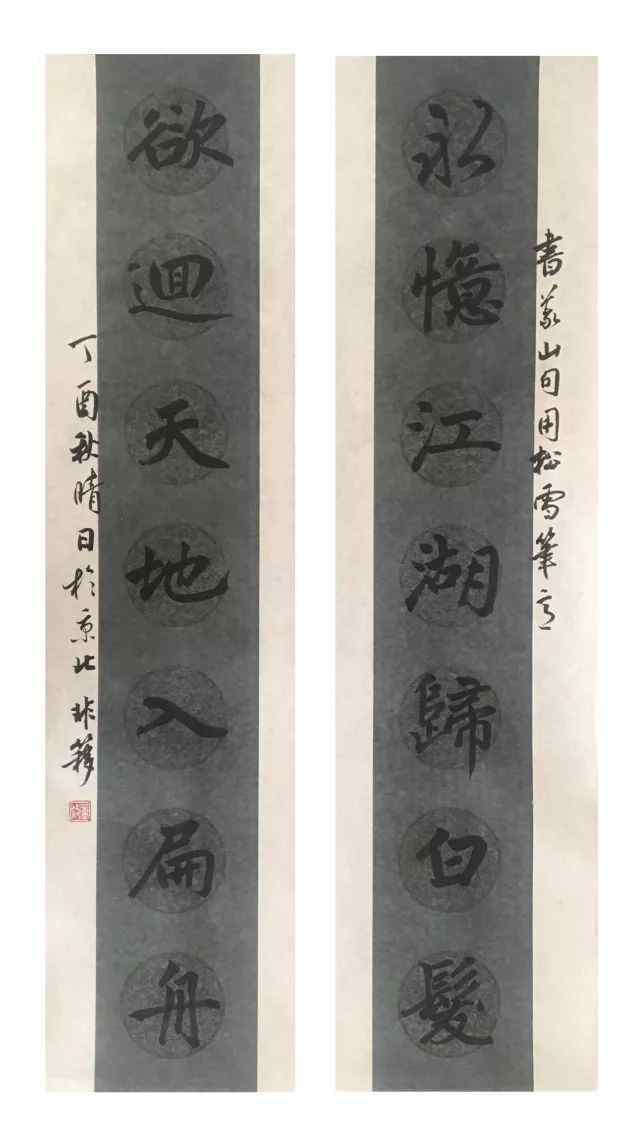 書義山句用松雪筆意
永憶江湖歸白髮
欲迴天地入扁舟
丁酉秋晴日於京北非